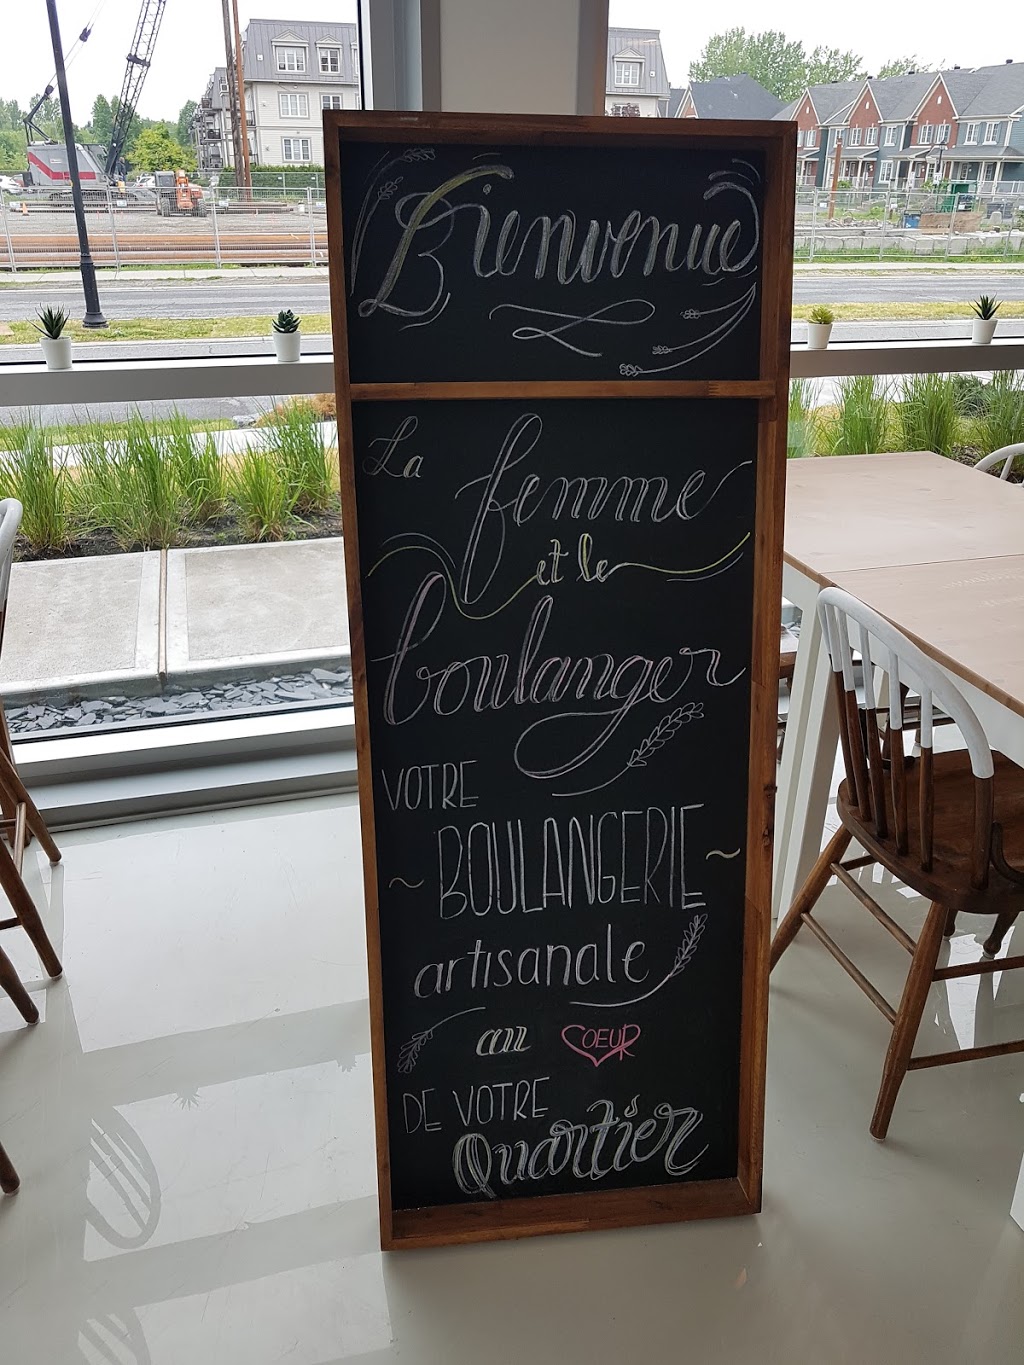 Bienvenue
La femme
et le
boulanger
VOTRE
~ BOULANGERIE ~
artisanale
au COEUR
DE VOTRE
Quartier